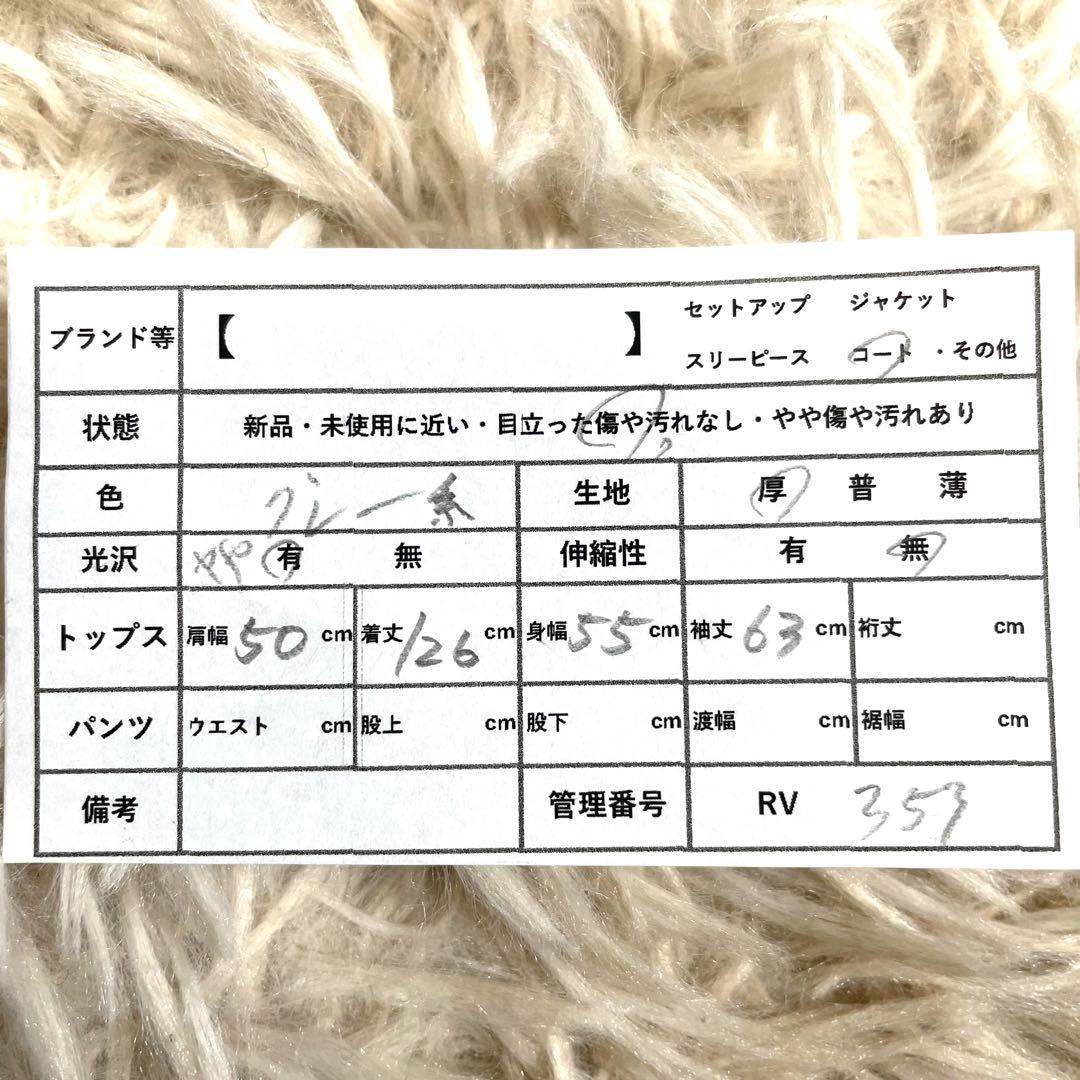 ブランド等 【 】 セットアップ ジャケット
スリーピース コート ・その他
状態 新品・未使用に近い・目立った傷や汚れなし・やや傷や汚れあり
色 グレー系 生地 厚 普 薄
光沢 やや 有 無 伸縮性 有 無
トップス 肩幅 50 cm 着丈 126 cm 身幅 55 cm 袖丈 63 cm 裄丈 cm
パンツ ウエスト cm 股上 cm 股下 cm 渡幅 cm 裾幅 cm
備考 管理番号 RV 353